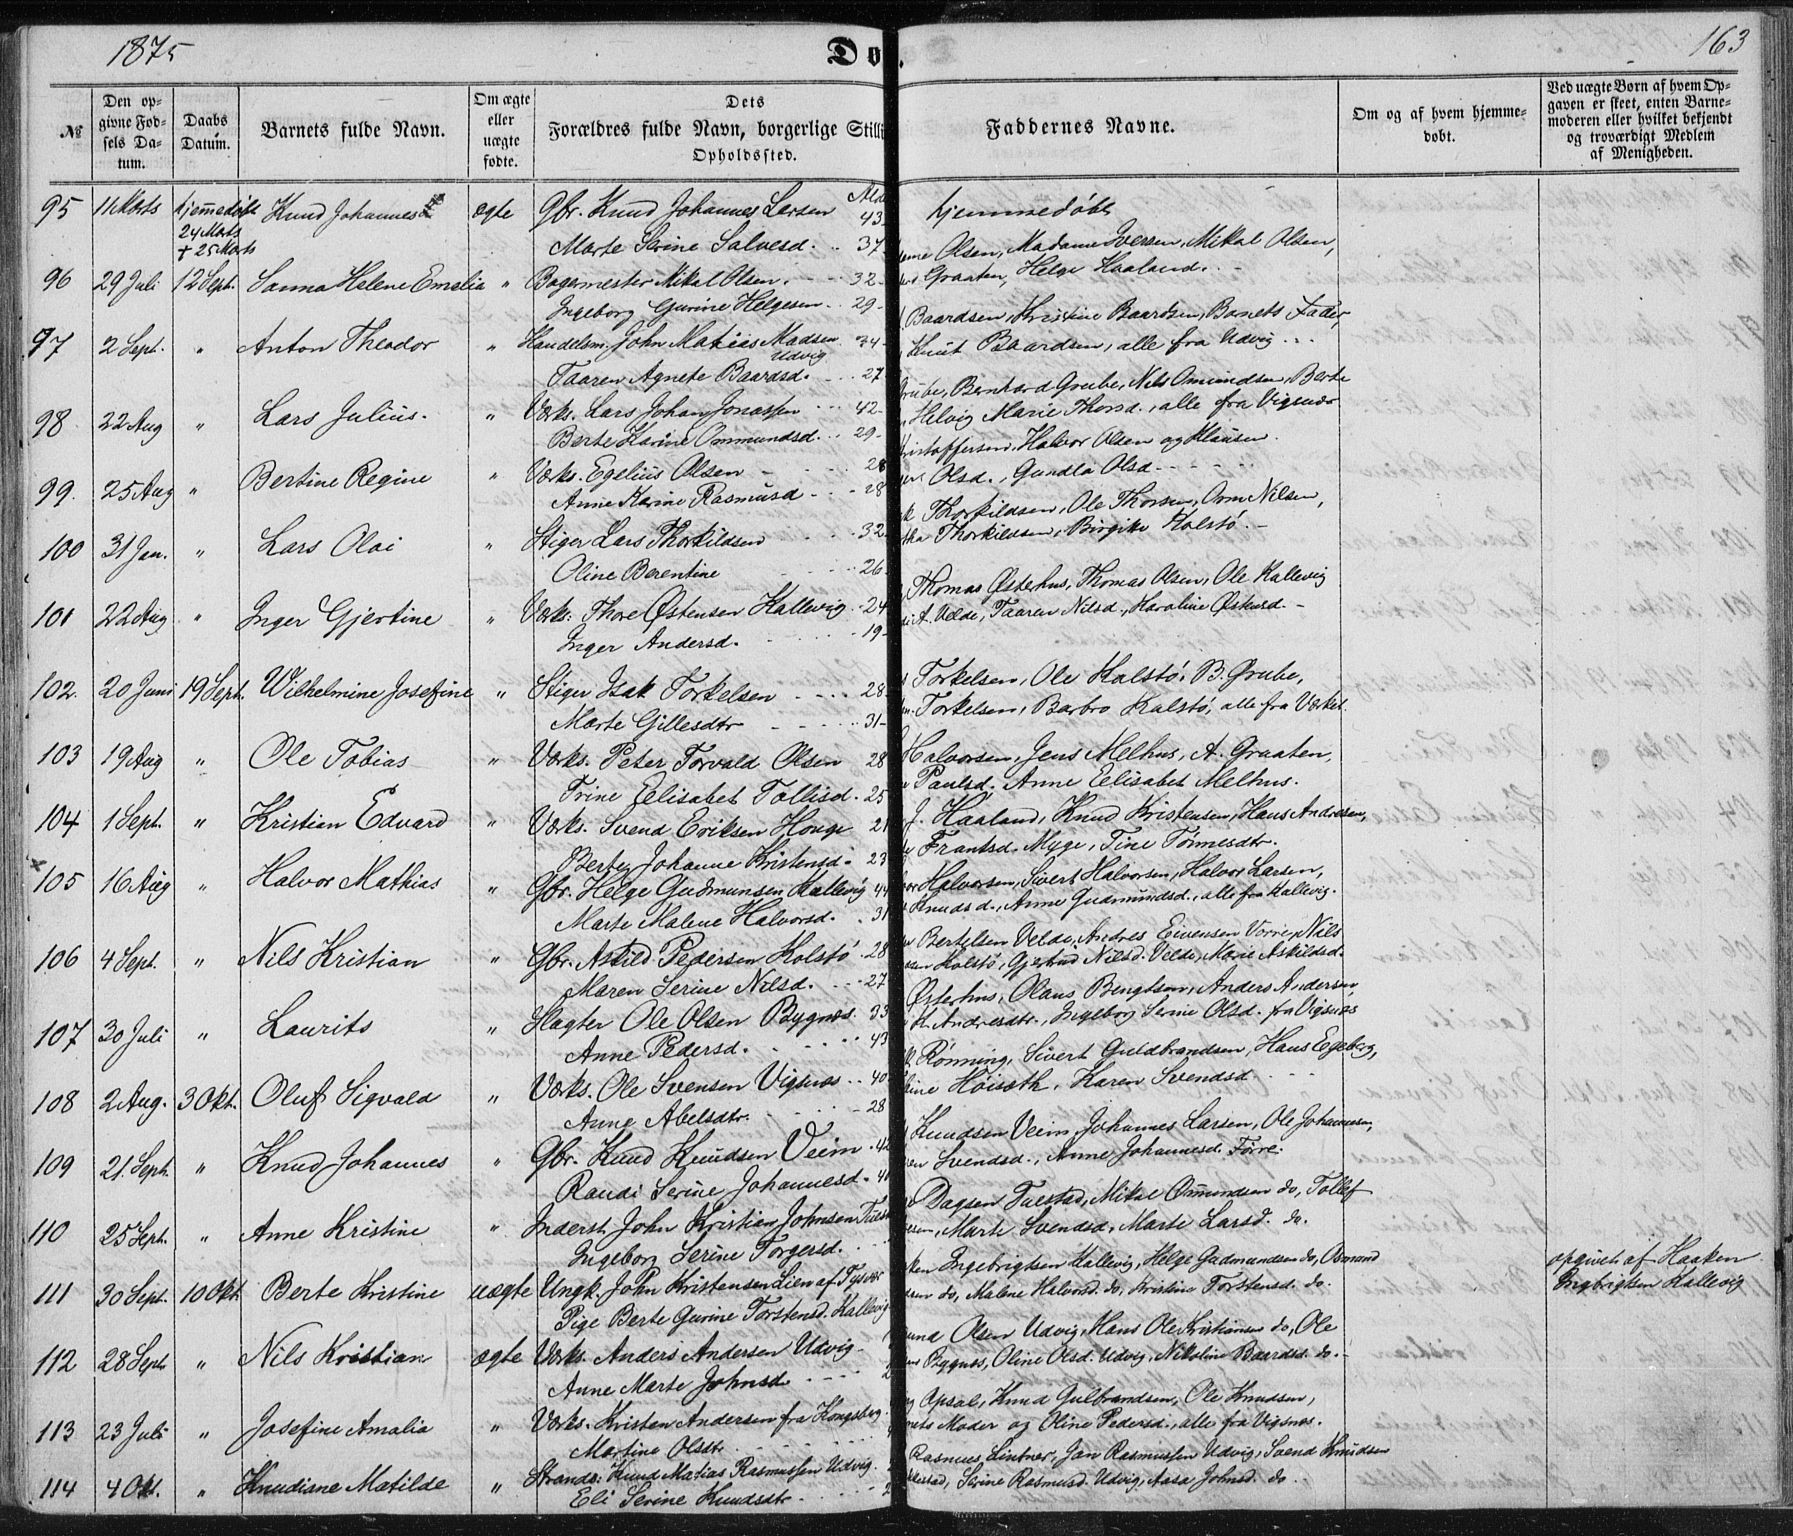 1875
Dø
163
№
Den op-
givne Fød-
sels Da-
tum.
Daabs
Datum.
Barnets fulde Navn.
Om ægte
eller
uægte
fødte.
Dets
Forældres fulde Navn, borgerlige Stilli
Opholdssted.
Faddernes Navne.
Om og af hvem hjemme-
døbt.
Ved uægte Børn af hvem Op-
gaven er skeet, enten Barne-
moderen eller hvilket bekjendt
og troværdigt Medlem
af Menigheden.
95 11 Marts hjemmedøbt Knud Johannes ægte Gbr. Knud Johannes Larsen 43 hjemmedøbt
24 Marts
† 25 Marts Marte Serine Salvesd. 37
Olsen, Madame Iversen, Mikal Olsen,
96 29 Juli 12 Sept. Sanna Helene Emelia " Bagermester Mikal Olsen. 32 Graaten, Helge Haaland.
Ingeborg Gurine Helgesen 29
Baardsen, Kristine Baardsen, Barnets Fader,
97 2 Sept. " Anton Theodor " Handelsm. John Matias Madsen Udvig 34 Knut Baardsen, alle fra Udvig
Taaren Agnete Baardsd. 27
Grube, Bernhard Grube, Nils Omundsen, Berte
98 22 Aug " Lars Julius. " Værks. Lars Johan Jonassen 42 Helvig Marie Thorsd., alle fra Vigsnæs
Berte Karine Ommundsd. 29
Kristoffersen, Halvor Olsen og Klausen.
99. 25 Aug " Bertine Regine " Værks. Egelius Olsen 28 Olsd., Gundla Olsd.
Anne Karine Rasmusd 28
Thorkildsen, Ole Thorsen, Orm Nilsen,
100 31 Jan. " Lars Olai " Stiger Lars Thorkildsen 32 Thorkildsen, Birgitte Kolstø.
Oline Berentine 26
Thomas Østerhus, Thomas Olsen, Ole Kallevig
101 22 Aug " Inger Gjertine " Værks. Thore Østensen Kallevig 24 A. Velde, Taaren Nilsd., Karoline Østensd.
Inger Andersd. 19
102. 20 Juni 19 Sept. Wilhelmine Josefine " Stiger Isak Torkelsen 28 Torkelsen, Ole Kalstø, B. Grube,
Marte Gillesdtr 31 Torkelsen, Barbro Kalstø, alle fra Værket.
103 19 Aug " Ole Tobias " Værks. Peter Torvald Olsen 28 Halvorsen, Jens Melhus, A. Graaten,
Trine Eelisabet Tollisd. 25 Paulsd. Anne Eelisabet Melhus.
104 1 Sept. " Kristian Edvard " Værks. Svend Eriksen Houge 21 J. Haaland, Knud Kristensen, Hans Andresen,
Johanne Kristensd. 23 Frantsd. Myge, Tine Tønnesdtr.
105 16 Aug " Halvor Mathias " Gbr. Helge Gudmunsen Kallevig 44 Halvorsen, Sivert Halvorsen, Halvor Larsen,
Marte Malene Halvorsd. 31 Knudsd., Anne Gudmundsd., alle fra Kallevig.
106 4 Sept. " Nils Kristian " Gbr. Askild Pedersen Kolstø 28 Bertelsen Velde, Andres Eivensen Vorre, Nils
Maren Serine Nilsd. 27 Kolstø, Gjertrud Nilsd. Velde, Marie Askildsd.
107 30 Juli " Laurits " Slagter Ole Olsen Bygnæs. 33 Østerhus, Olaus Bengtsen, Anders Andersen,
Anne Pedersd. 43 K. Andresdtr., Ingeborg Serine Olsd. fra Vigsnæs
108 2 Aug. 3 Okt. Oluf Sigvald " Værks. Ole Svensen Vigsnæs 40 Rønning, Sivert Guldbrandsen, Hans Egeberg,
Anne Abelsdtr. 28 Høisæth, Karen Svendsd.
109 21. Sept. " Knud Johannes " Gbr. Knud Knudsen Veim 42 Knudsen Veim, Johannes Larsen, Ole Johannesen,
Randi Serine Johannesd. 40 Svendsd., Anne Johannesd. Førre.
110 25 Sept. " Anne Kristine " Inderst. John Kristian Johnsen Dagsen Tuestad, Mikal Omundsen do, Tollef
Ingeborg Serine Torgersd. Marte Svendsd., Marte Larsd. do.
111 30 Sept. 10 Okt. Berte Kristine uægte Ungk. John Kristensen Lien af Tysvær Ingebrigtsen Kallevig, Helge Gudmundsen do, Osmund opgivet af Haaken
Pige Berte Gurine Torstensd. Kallevig do, Malene Halvorsd. do, Kristine Torstensd. do. Ingbrigtsen Kallevig
112 28 Sept " Nils Kristian ægte Værks. Anders Andersen Udvig Olsen Udvig, Hans Ole Kristiansen do, Ole
Anne Marte Johnsd Bygnes, Oline Olsd. Udvig, Nikoline Baardsd. do.
113 23 Juli " Josefine Amalia " Værks. Kristen Andersen fra Kongsberg Opsal, Knud Gulbrandsen, Ole Knudsen,
Martine Olsdtr. Moder og Oline Pedersd., alle fra Vigsnæs.
114 4 Okt. " Knudiane Matilde " Strands. Knud Matias Rasmussen Udvig Rasmus Lintner, Jan Rasmussen Udvig, Svend Knudsen
Eli Serine Knudsdtr. Serine Rasmusd. Udvig, Aasa Johnsd. do